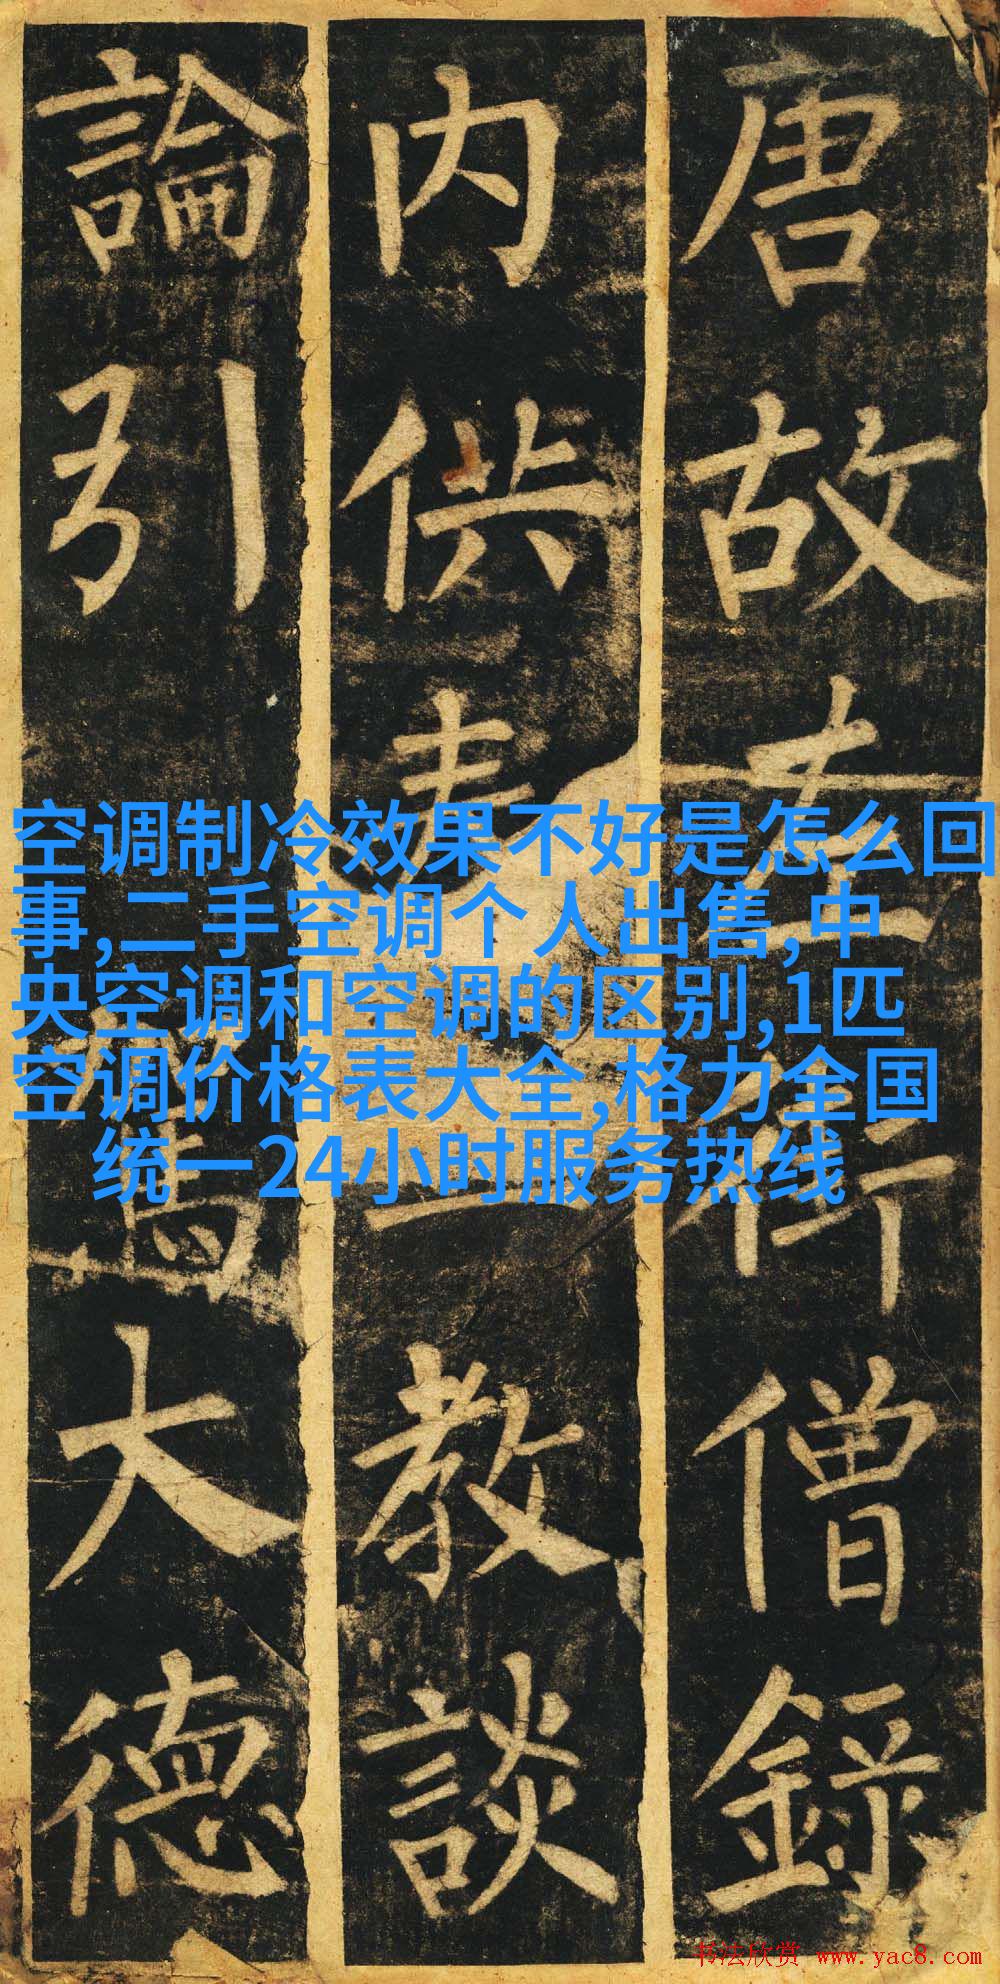 唐故左街僧錄
内供教談
論引大德
空调制冷效果不好是怎么回
事,二手空调个人出售,中
央空调和空调的区别,1匹
空调价格表大全,格力全国
统一24小时服务热线
书法欣赏 www.yac8.com